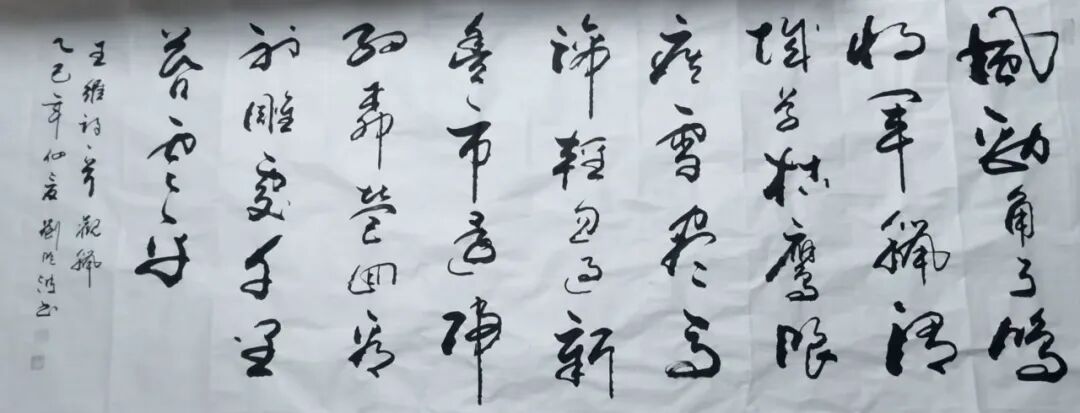 風勁角弓鳴
將軍獵渭
城草枯鷹眼
疾雪盡馬
蹄輕忽過新
豐市還歸
細柳營迴看
射雕處千里
暮雲平
王維詩一首 觀獵
乙巳年仲夏 劉波書